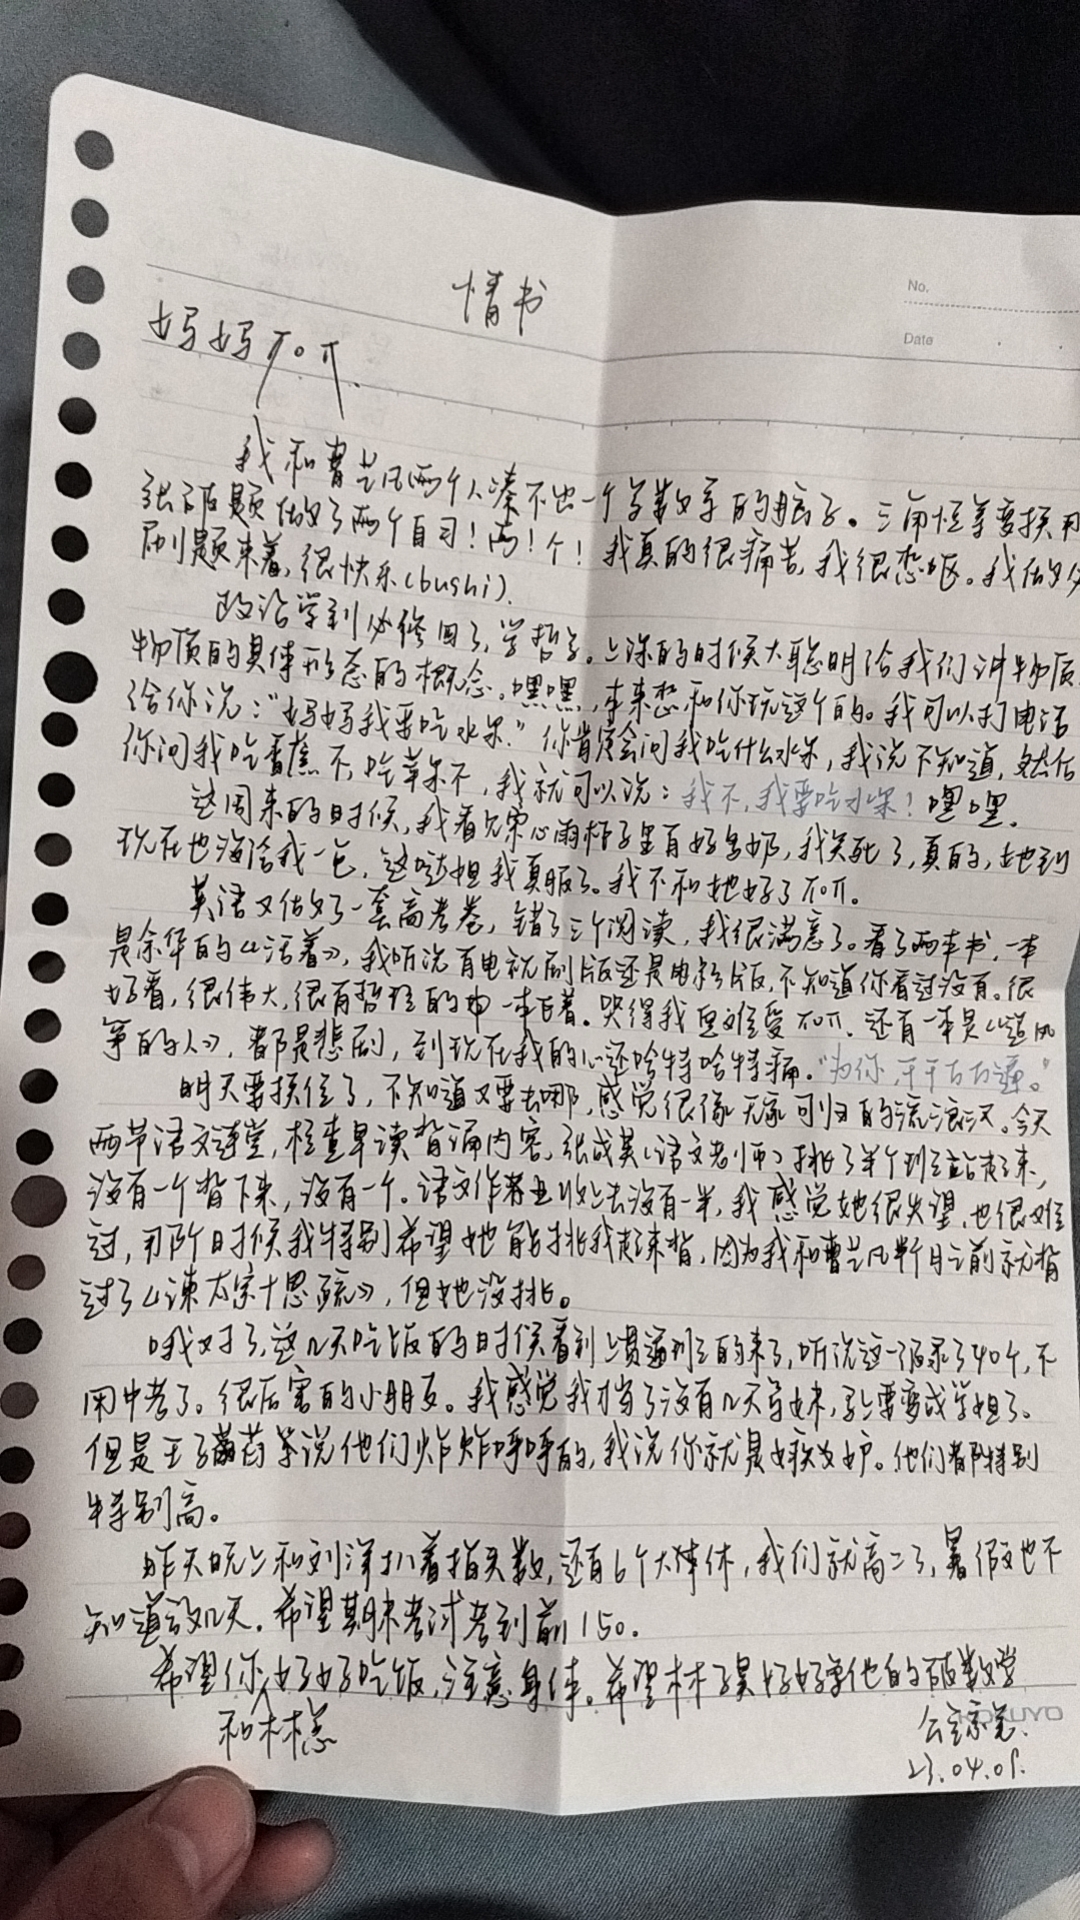 情书
No.
Date
妈妈
我和曹艺凡两个人凑不出一个学数学的脑子。三角恒等变换
张破题做了两个自习！两！个！我真的很痛苦，我很想呕。我做
刷题来着，很快乐(bushi).
政治学到必修四了，学哲学。上课的时候大聪明给我们讲物质
物质的具体形态的概念。嘿嘿，本来想和你玩这个的。我可以打电话
给你说："妈妈我要吃水果."你肯定会问我吃什么水果，我说不知道，然后
你问我吃香蕉不，吃苹果不，我就可以说：我不，我要吃水果！嘿嘿.
这周来的时候，我看见宋心雨柜子里有好多奶，我笑死了，真的，她到
现在也没给我一包，这哒妞我真服了。我不和她好了
英语又做了一套高考卷，错了三个阅读，我很满意了。看了两本书，一本
是余华的《活着》，我听说有电视剧版还是电影版，不知道你看过没有。很
好看，很伟大，很有哲理的中一本书。哭得我更难受 还有一本是《追风
筝的人》，都是悲剧，到现在我的心还哈特哈特痛."为你，千千万万遍。"
明天要换位了，不知道又要去哪，感觉很像无家可归的流浪汉。今天
两节语文连堂，检查早读背诵内容，张成英(语文老师)挑了半个班站起来，
没有一个背下来，没有一个。语文作者业收上去没有一半，我感觉她很失望，也很难
过，那个时候我特别希望她能挑我起来背，因为我和曹艺凡半个月之前就背
过了《谏太宗十思疏》，但她没挑。
哦对了，这几天吃饭的时候看到上贯通班的来了，听说这一届录了40个，不
用中考了。很厉害的小朋友。我感觉我才当了没有几天学妹，马上要变成学姐了。
但是王子说他们炸炸呼呼的，我说你就是嫉妒。他们都特别
特别高。
昨天晚上和刘洋扒着指头数，还有6个大休，我们就高二了，暑假也不
知道放几天。希望期末考试考到前150.
希望你好好吃饭，注意身体。希望林子昊好好学他的破数学
和林
KOKUYO
23.04.01.